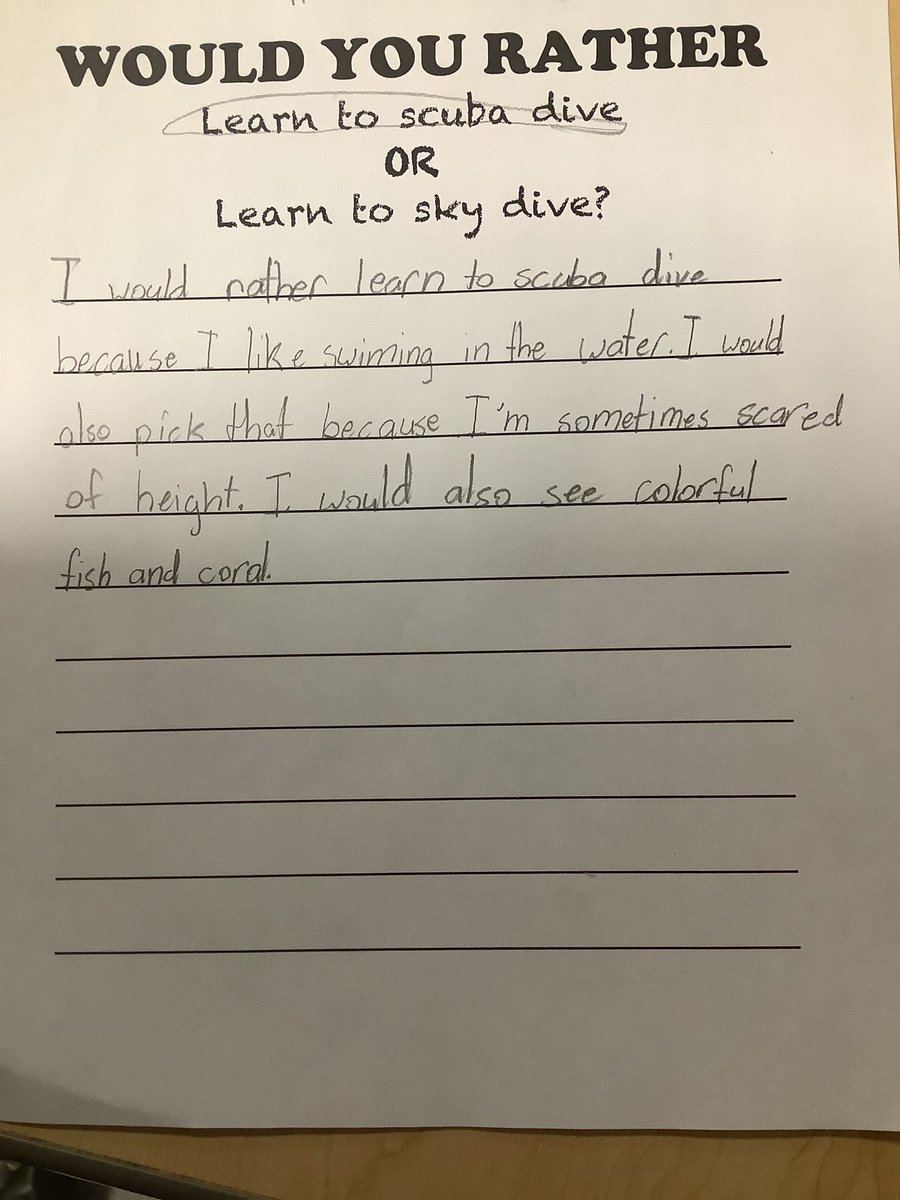 WOULD YOU RATHER
Learn to scuba dive
OR
Learn to sky dive?
I would rather learn to scuba dive
because I like swiming in the water. I would
also pick that because I'm sometimes scared
of height. I would also see colorful
fish and coral.